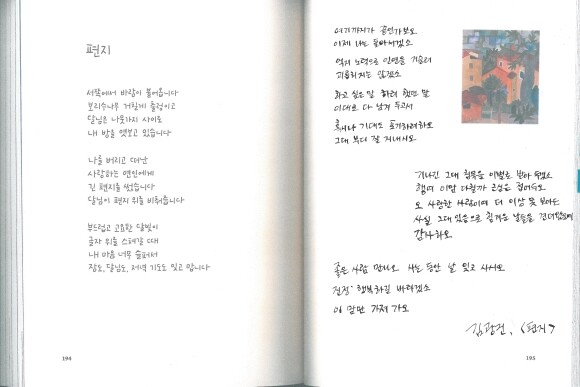 편지
서쪽에서 바람이 불어옵니다
보리수나무 거칠게 출렁이고
달님은 나뭇가지 사이로
내 방을 엿보고 있습니다
나를 버리고 떠난
사랑하는 연인에게
긴 편지를 썼습니다
달님이 편지 위를 비춰줍니다
부드럽고 고요한 달빛이
글자 위를 스쳐갈 때
내 마음 너무 슬퍼서
잠도, 달님도, 저녁 기도도 잊고 맙니다
194
여기까지가 끝인가 보오
이제 나는 돌아서겠소
억지 노력으로 인연을 거슬러
괴롭히지는 않겠소
하고 싶은 말 하려 했던 말
이대로 다 남겨 두고서
혹시나 기대도 포기하려하오
그대 부디 잘 지내시오
기나긴 그대 침묵을 이별로 받아 두겠소
행여 이 맘 다칠까 근심은 접어두오
오 사랑한 사람이여 더 이상 못 보아도
사실 그대 있음으로 힘겨운 날들을 견뎌 왔음에
감사하오
좋은 사람 만나오 사는 동안 날 잊고 사시오
진정 행복하길 바라겠소
이 맘만 가져 가오
김광진, <편지>
195